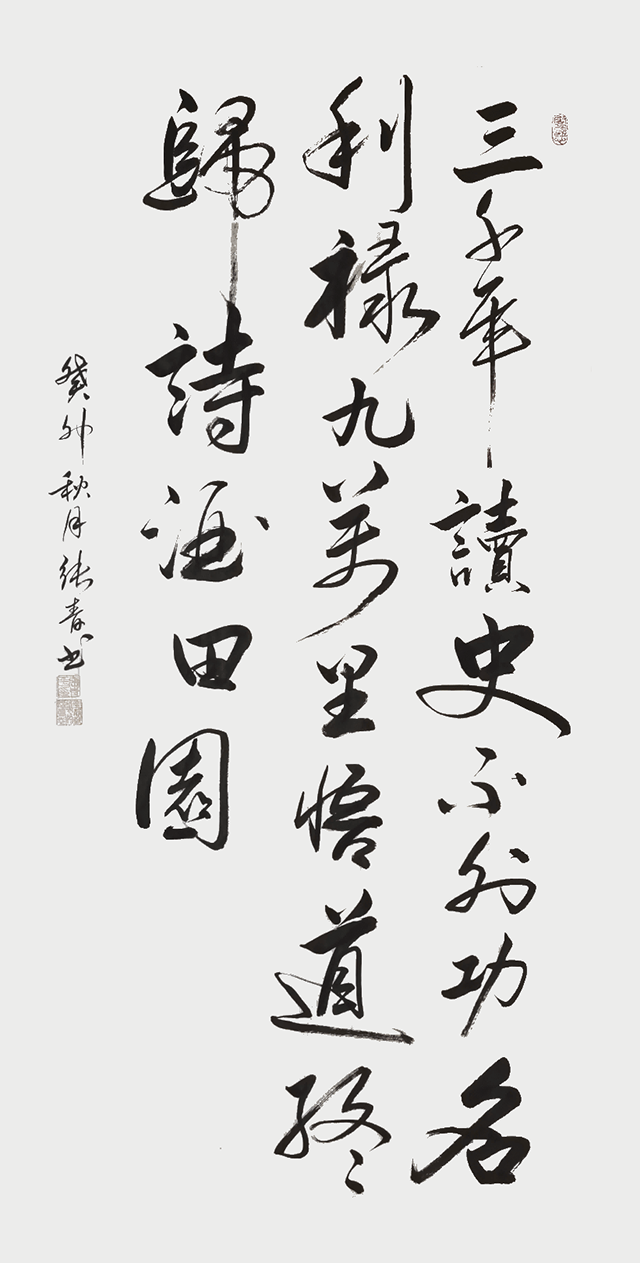 三千年讀史不外功名
利祿九萬里悟道終
歸詩酒田園
癸卯秋月張青書